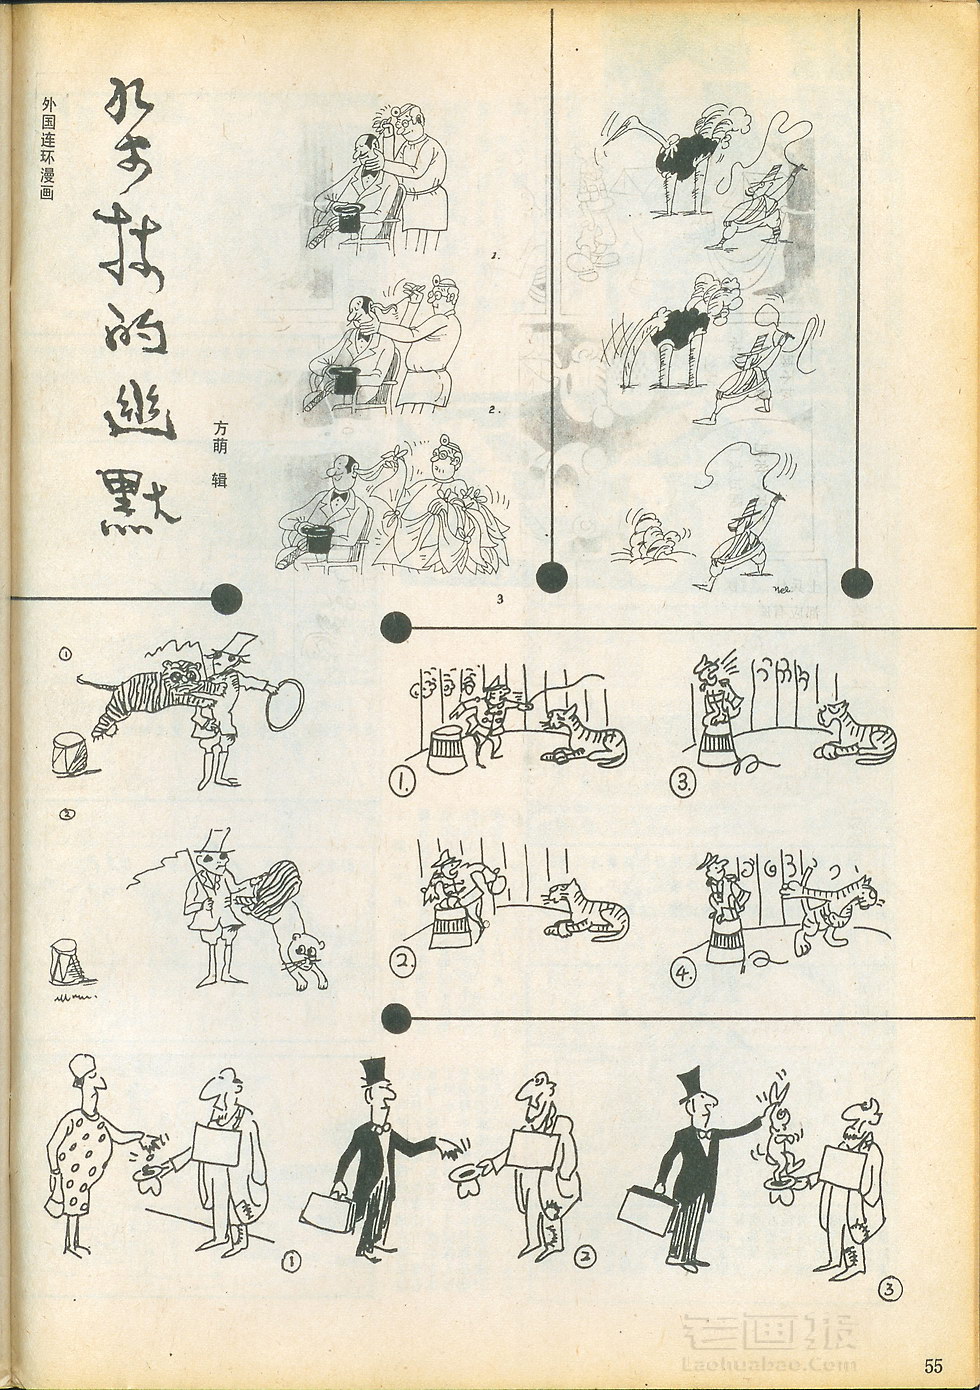 外国连环漫画
杂技的幽默
方萌 辑
1.
2.
3
①
②
1.
2.
3.
4.
①
②
③
老画报
Laohuabao.Com
55